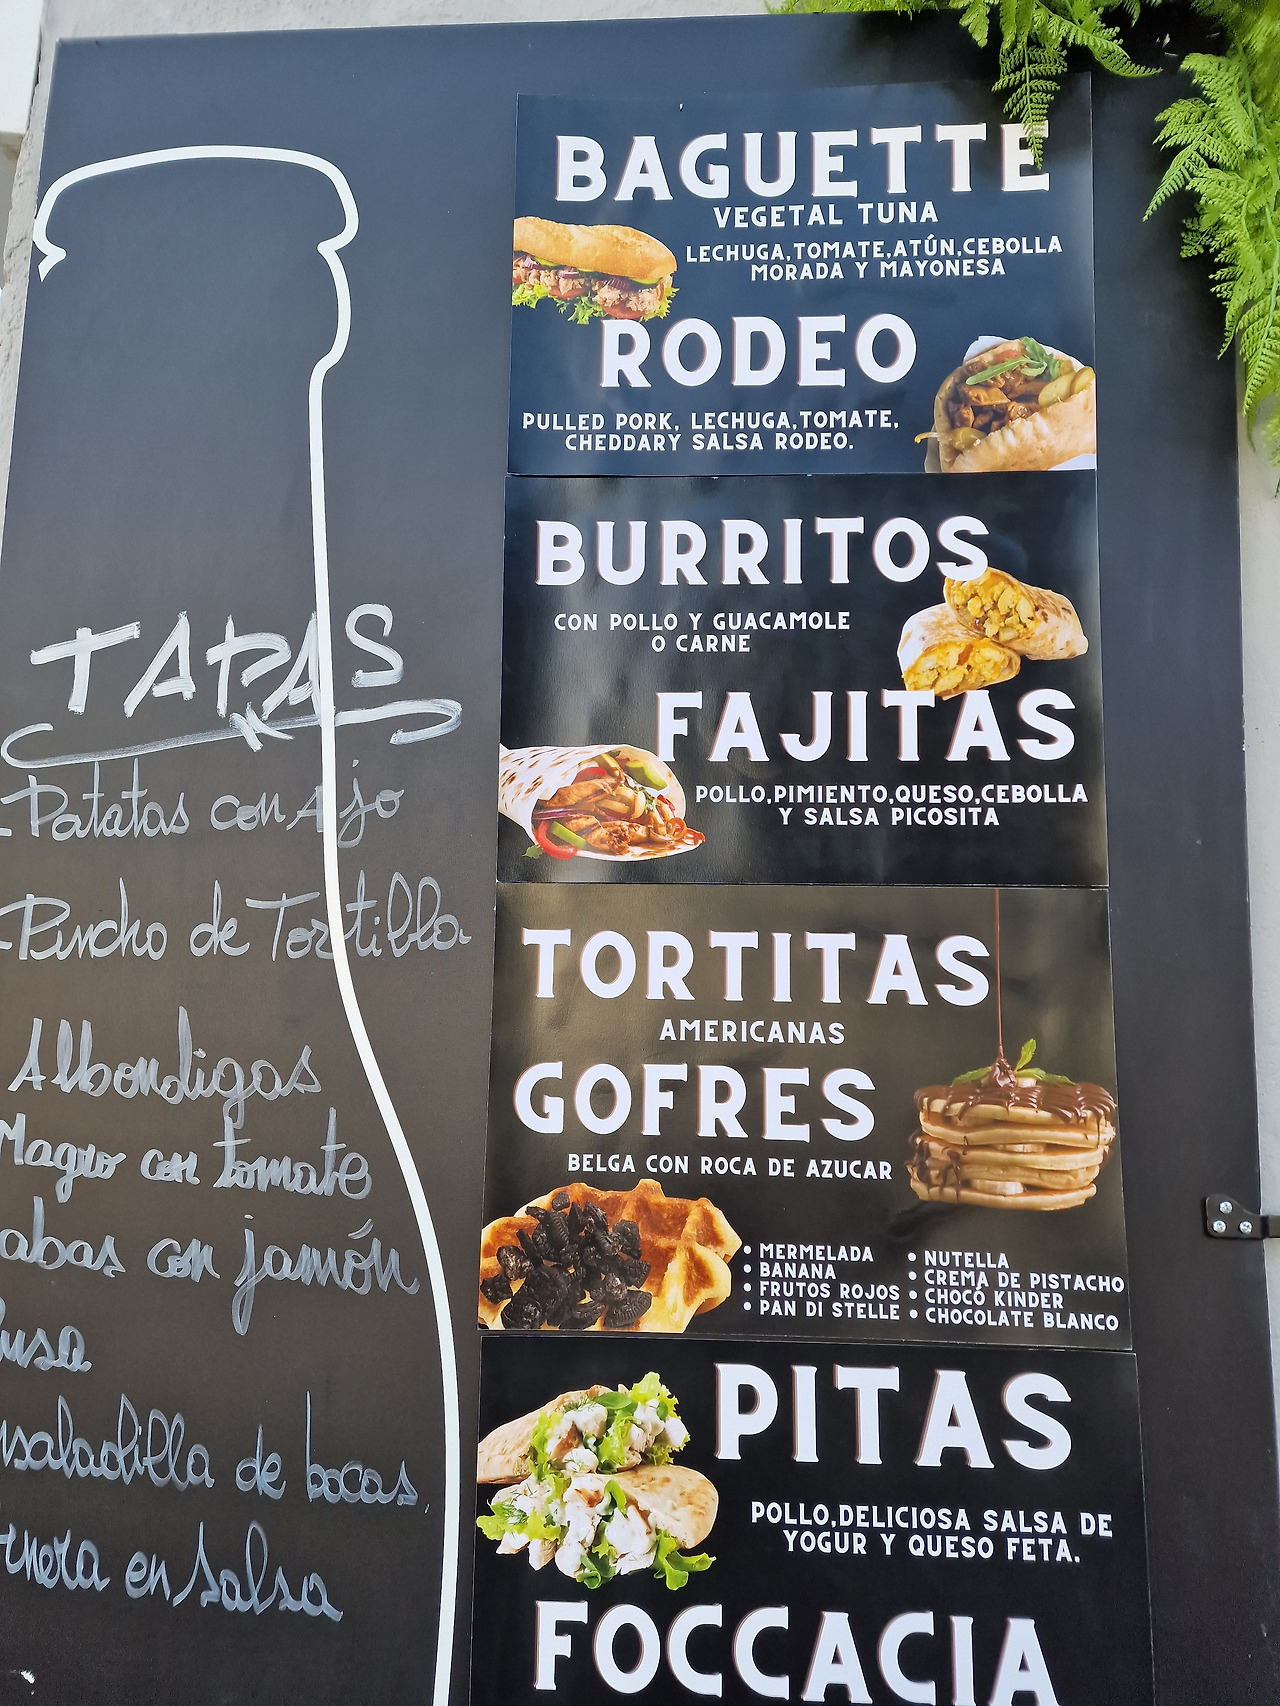 TAPAS
-Patatas con Ajo
-Pincho de Tortilla
Albondigas
Magro con tomate
abas con jamón
usa
nsaladilla de bocas.
rnera en salsa
BAGUETTE
VEGETAL TUNA
LECHUGA,TOMATE,ATÚN,CEBOLLA
MORADA Y MAYONESA
RODEO
PULLED PORK, LECHUGA,TOMATE,
CHEDDARY SALSA RODEO.
BURRITOS
CON POLLO Y GUACAMOLE
O CARNE
FAJITAS
POLLO,PIMIENTO,QUESO,CEBOLLA
Y SALSA PICOSITA
TORTITAS
AMERICANAS
GOFRES
BELGA CON ROCA DE AZUCAR
• MERMELADA
• BANANA
• FRUTOS ROJOS
• PAN DI STELLE
• NUTELLA
• CREMA DE PISTACHO
• CHOCÓ KINDER
• CHOCOLATE BLANCO
PITAS
POLLO,DELICIOSA SALSA DE
YOGUR Y QUESO FETA.
FOCCACIA